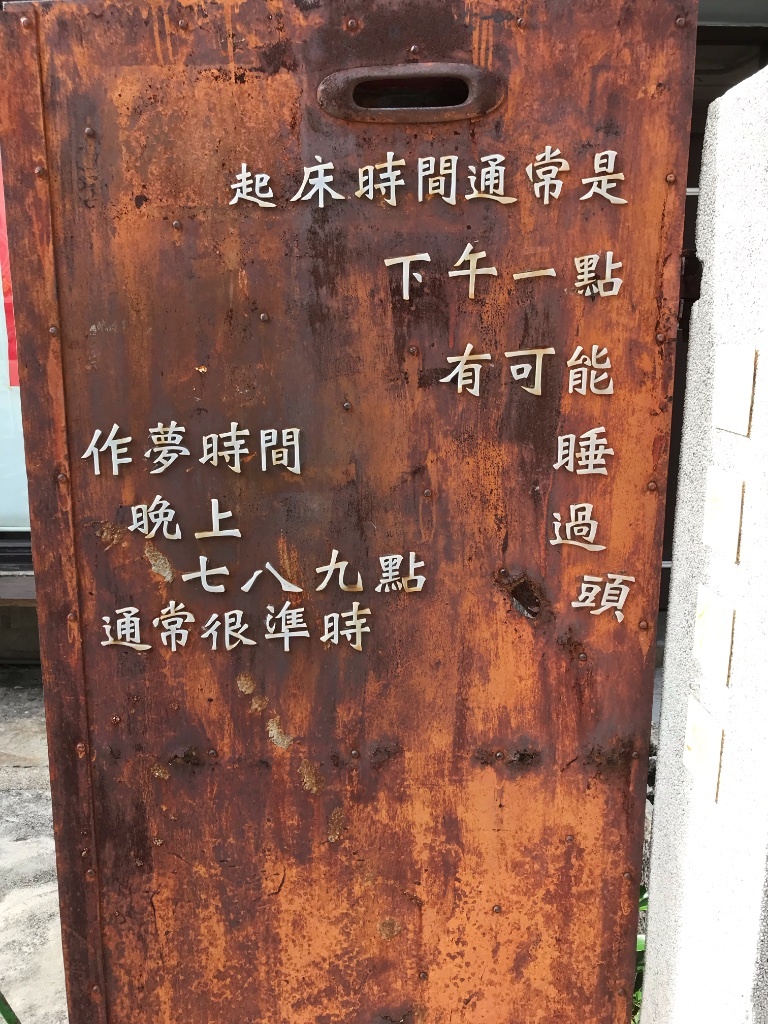 起床時間通常是
下午一點
有可能
睡
過
頭
作夢時間
晚上
七八九點
通常很準時